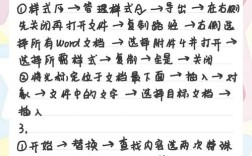 ①样式万→管理样式A→导出→在右侧
先关闭再打开文件→复制路径→在右侧选
择所有Word文档→选择附件4并打开→
选择所需样式→复制→全是→关闭
②将光标定位于文档最下面→插入→对
象→文件中的文字→选择目标文档→
插入
3.
①开始→替换→查找内容选两次特殊